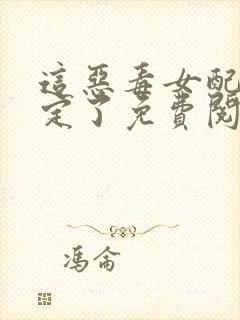 這惡毒女配
定了免費閱
馮侖